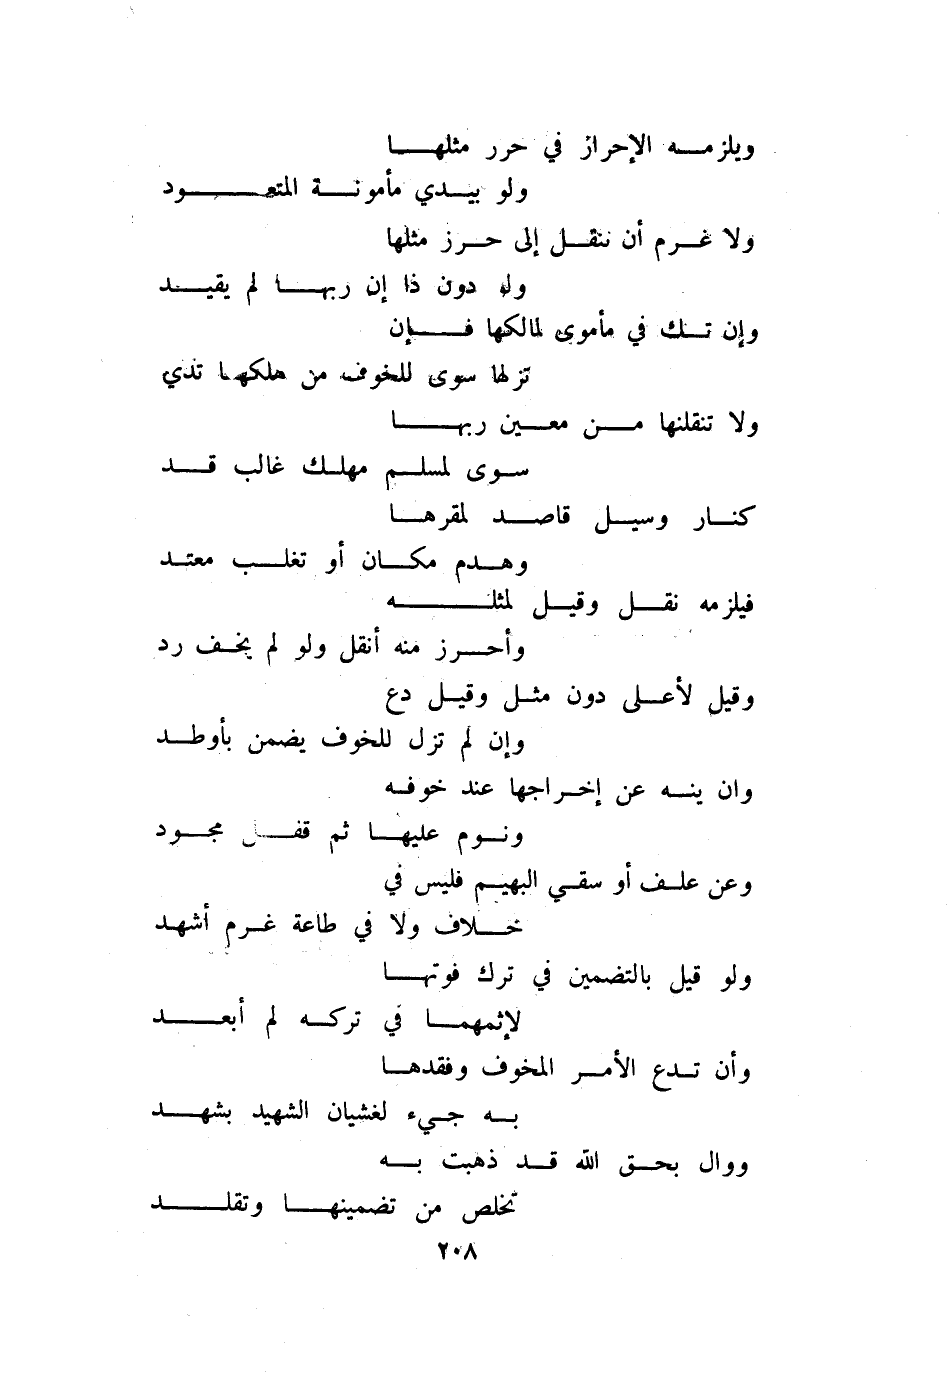 ويلزمه الإحراز في حرر مثلها
ولو بيدي مأمونة المتعود
ولا غرم أن ننقل إلى حرز مثلها
ولو دون ذا إن ربها لم يقيد
وإن تك في مأموى لمالكها فإن
تزلها سوى للخوف من هلكها تدي
ولا تنقلنها من معين ربها
سوى لمسلم مهلك غالب قد
كنار وسيل قاصد لمقرها
وهدم مكان أو تغلب معتد
فيلزمه نقل وقيل لمثله
وأحرز منه أنقل ولو لم يخف رد
وقيل لأعلى دون مثل وقيل دع
وإن لم تزل للخوف يضمن بأوطد
وان ينه عن إخراجها عند خوفه
ونوم عليها ثم قفل مجود
وعن علف أو سقي البهيم فليس في
خلاف ولا في طاعة غرم أشهد
ولو قيل بالتضمين في ترك فوتها
لإثمهما في تركه لم أبعد
وأن تدع الأمر المخوف وفقدها
به جيء لغشيان الشهيد بشهد
ووال بحق الله قد ذهبت به
تخلص من تضمينها وتقلد
٢٠٨